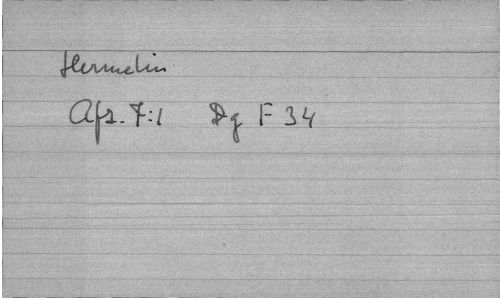 Hermelin
Afr. 7:1 Dg F 34